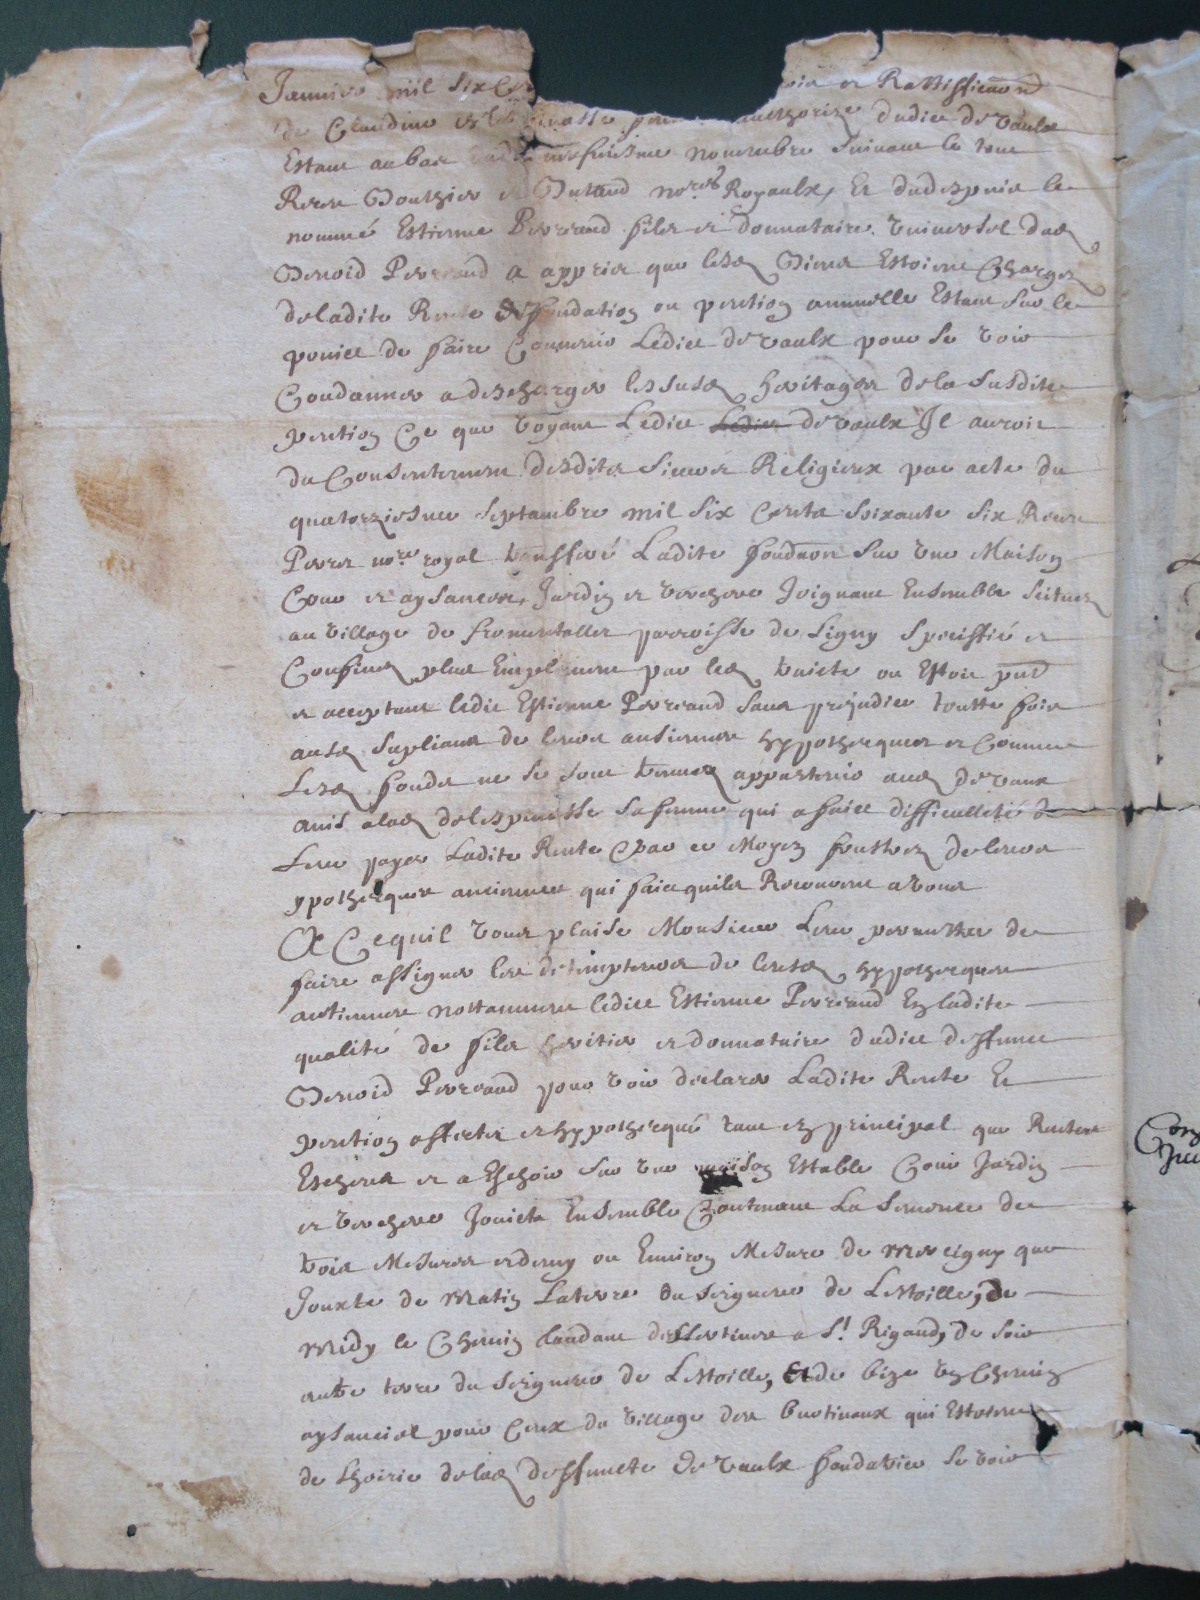 Januier mil six Ce oir et Rattiffication
de Claudine de lespinasse authorizee dudict de vaulx
Estant au bas du novembre suiuant le tout
Receu et Durand nores Royaulx, Et dudespuis le
nommé Estienne Perreaud filz et donnataire vniuersel dud
Benoid Perreaud a apprier que lesd biens Estoient Chargez
de ladite Rente de fondation ou pention annuelle Estant sur le
poinct de faire Conuenir Ledict de vaulx pour se voir
Condamner a descharger les susd heritages de la susdite
pention Ce que voyant Ledict Ledict de vaulx Il auroit
du Consentement desdits sieurs Religieux par acte du
quatorziesme septambre mil six Cents soixante six Receu
Perrer nore royal transferé Ladite fondaon sur vne Maison
Cour et aysances, Jardin et verchere Joignant Ensemble scituez
au village de fromentallet parroisse de Ligny speciffié et
Confinez plus Emplement par led traicté ou Estoit pnt
et acceptant ledit Estienne Perreaud sans prejudice toutte fois
ausd supliants de leurs antiennes hyppothecques et Comme
Lesd fonds ne se sont treuuez appartenir aud de vaux
ains a lad de lespinasse sa femme qui a faict difficulleté de
Leur payer Ladite Rente Par ce Moyen frustrez de leurs
ypothecques anciennes qui faict quils Recourent a vous
A Cequil vous plaise Monsieur Leur permettre de
faire assigner les detempteurs de leursd hypothecques
antiennes nottamment ledict Estienne Perreaud En ladite
qualité de filz heritier et donnataire dudict deffunct
Benoid Perreaud pour voir declarer Ladite Rente Et
pention affectée et hyppothecqué tant en principal que Rentes
Escheus et a Eschoir sur vne maison Estable Cour Jardin
et verchere Joincts Ensemble Contenant La semence de
trois Mesures et demy ou Enuiron Mesure de Marcigny que
Jouxte de Matin La terre du seigneur de LEstoille, de
Midy le Chemin tandant de a St Rigaud, de soir
autre terre du seigneur de LEstoille, Et de bize vn Chemin
aysancial pour Ceux du village des bertinaux qui Estoient
de lhoirie de lad deffuncte de vaulx fondatrice se voir